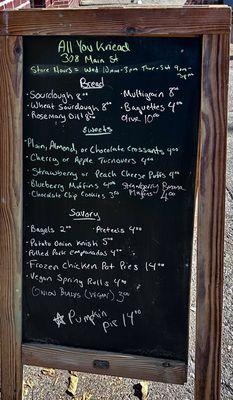 All You Knead
308 Main St
Store Hours = Wed 10am-3pm Thur-Sat 9am-
3pm
Bread
-Sourdough 8.00 • Multigrain 8.00
-Wheat Sourdough 8.00 • Baguettes 4.00
-Rosemary Dill 8.00 Olive 10.00
Sweets
-Plain, Almond, or Chocolate Croissants 4.00
-Cherry or Apple Turnovers 4.00
-Strawberry or Peach Cheese Puffs 4.00
-Blueberry Muffins 4.00 Strawberry Banana
-Chocolate Chip Cookies 3.00 Muffins 4.00
Savory
-Bagels 2.00 -Pretzels 4.00
-Potato Onion Knish 5.00
-Pulled Pork empanadas 4.00
-Frozen Chicken Pot Pies 14.00
-Vegan Spring Rolls 4.00
(Onion Bialys (vegan) 3.00
☆ Pumpkin
pie 14.00